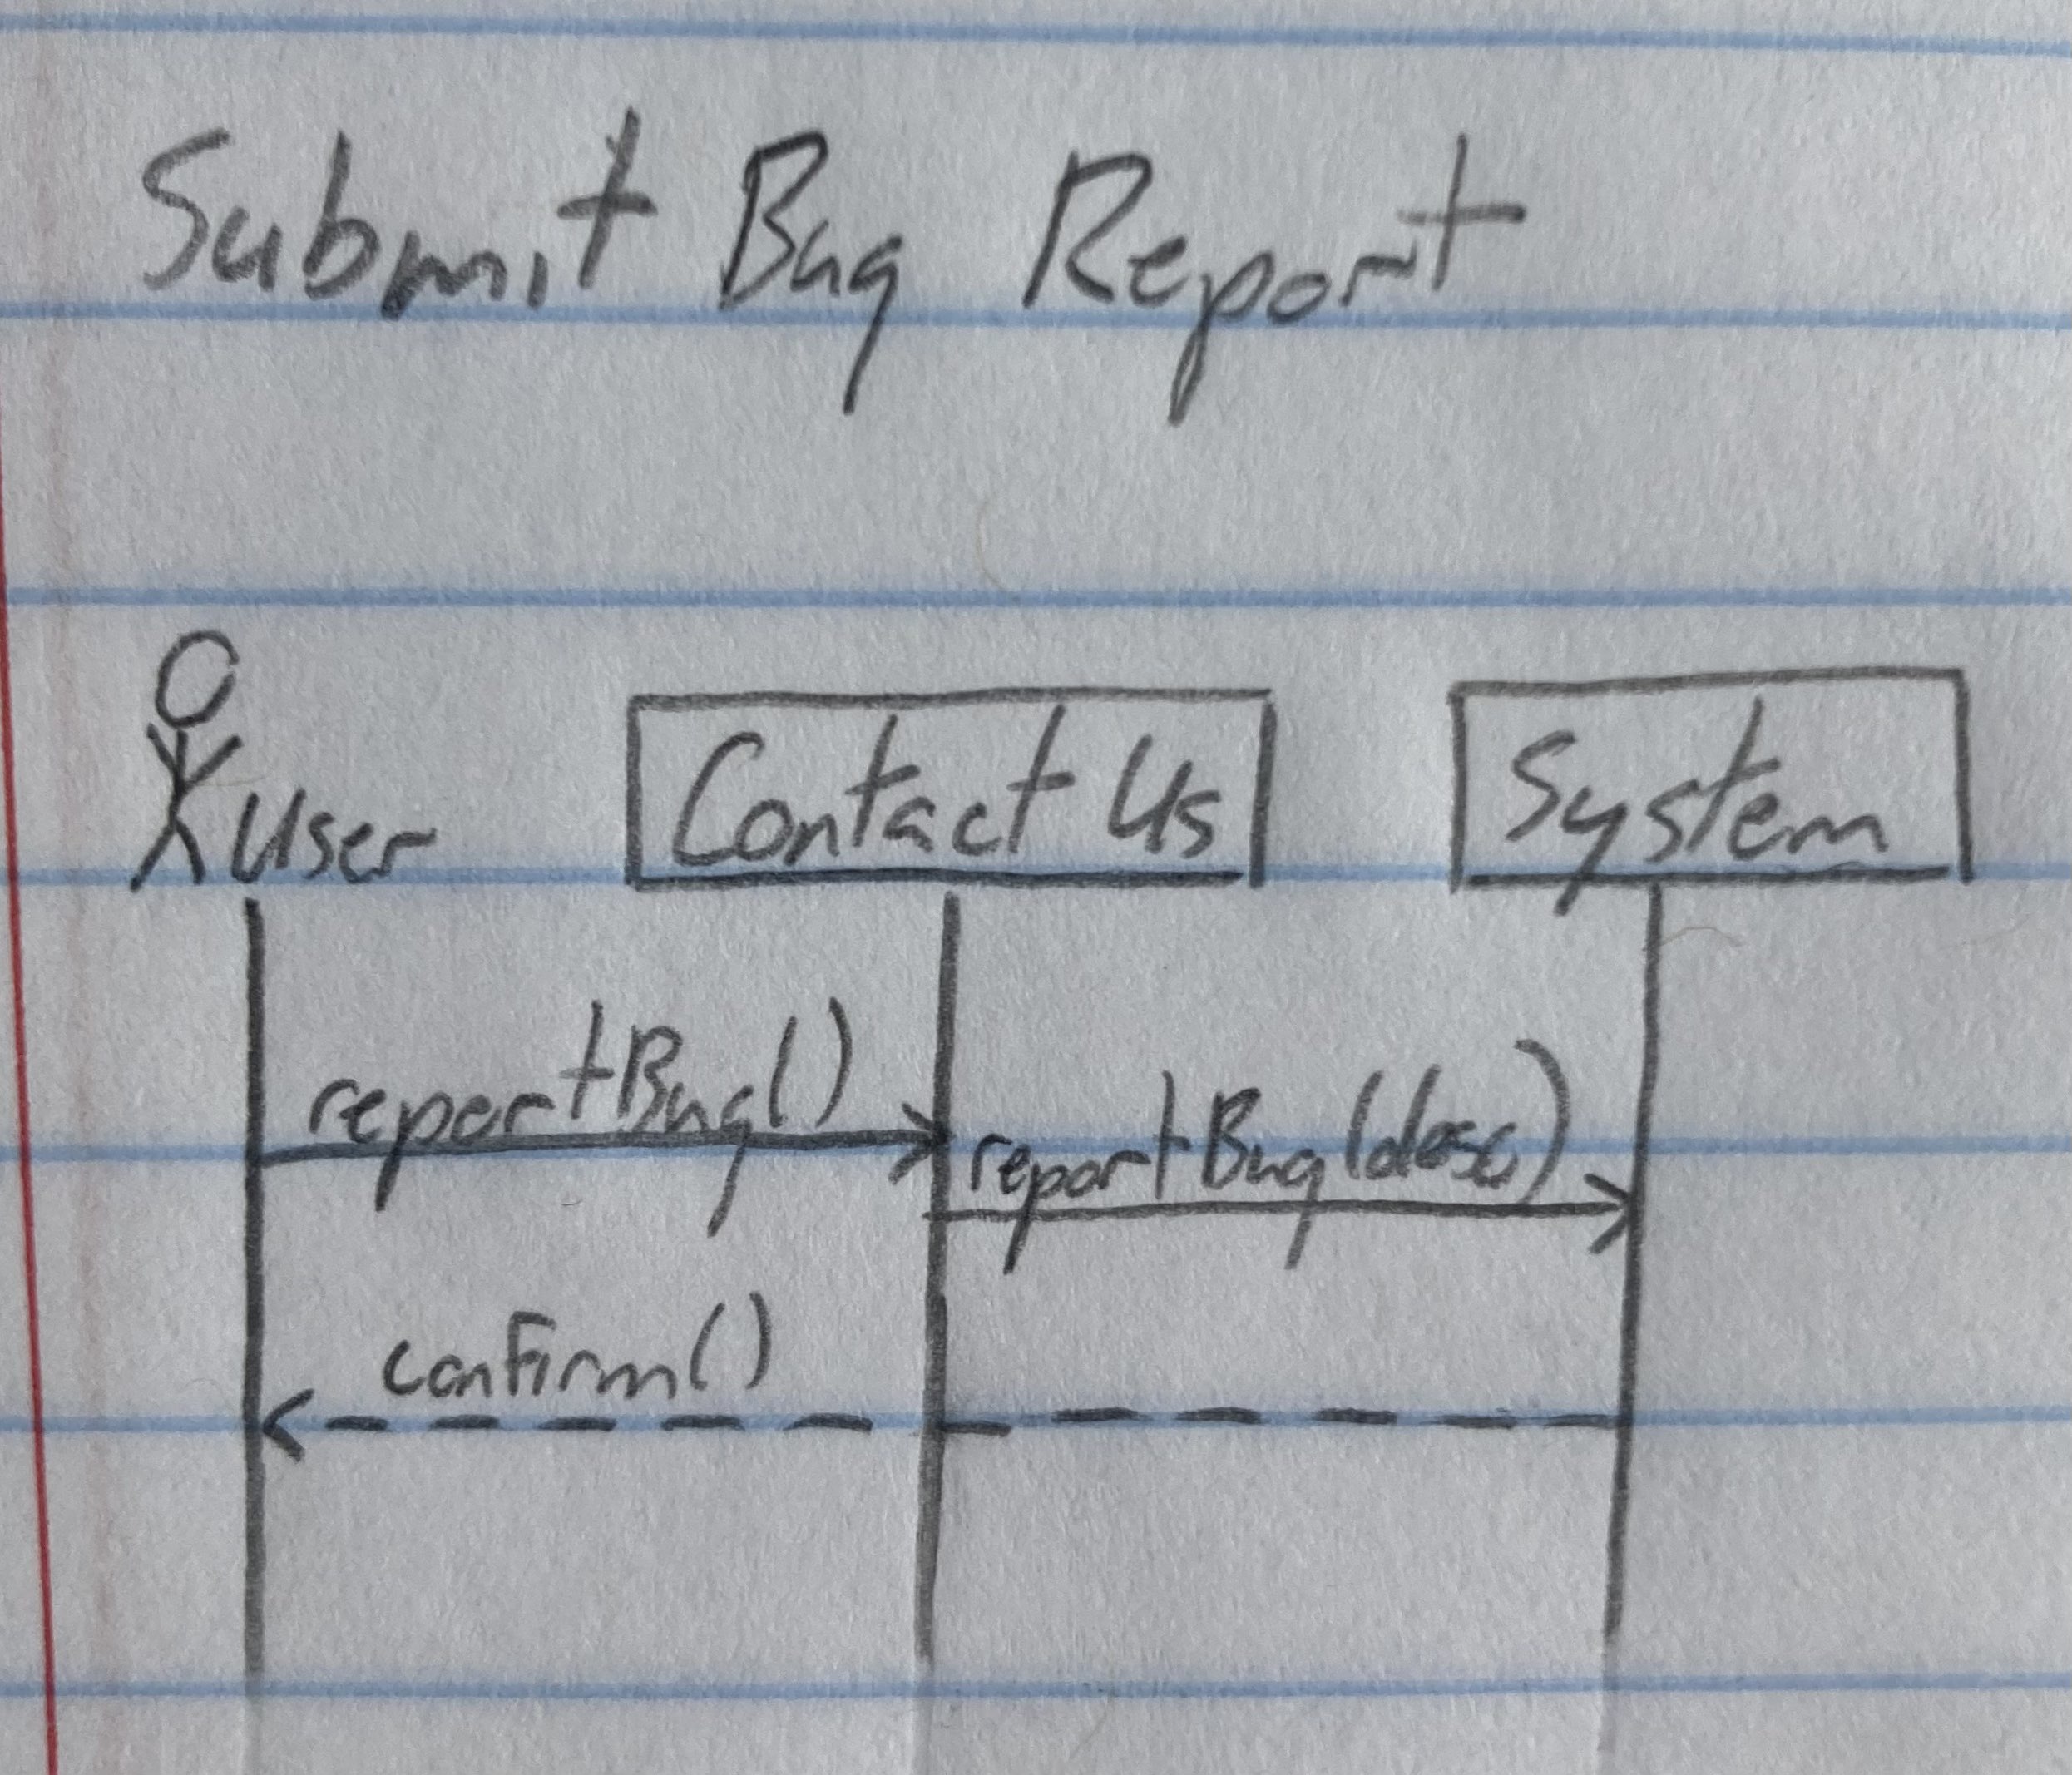 Submit Bug Report
User
Contact Us
System
reportBug()
reportBug(desc)
confirm()